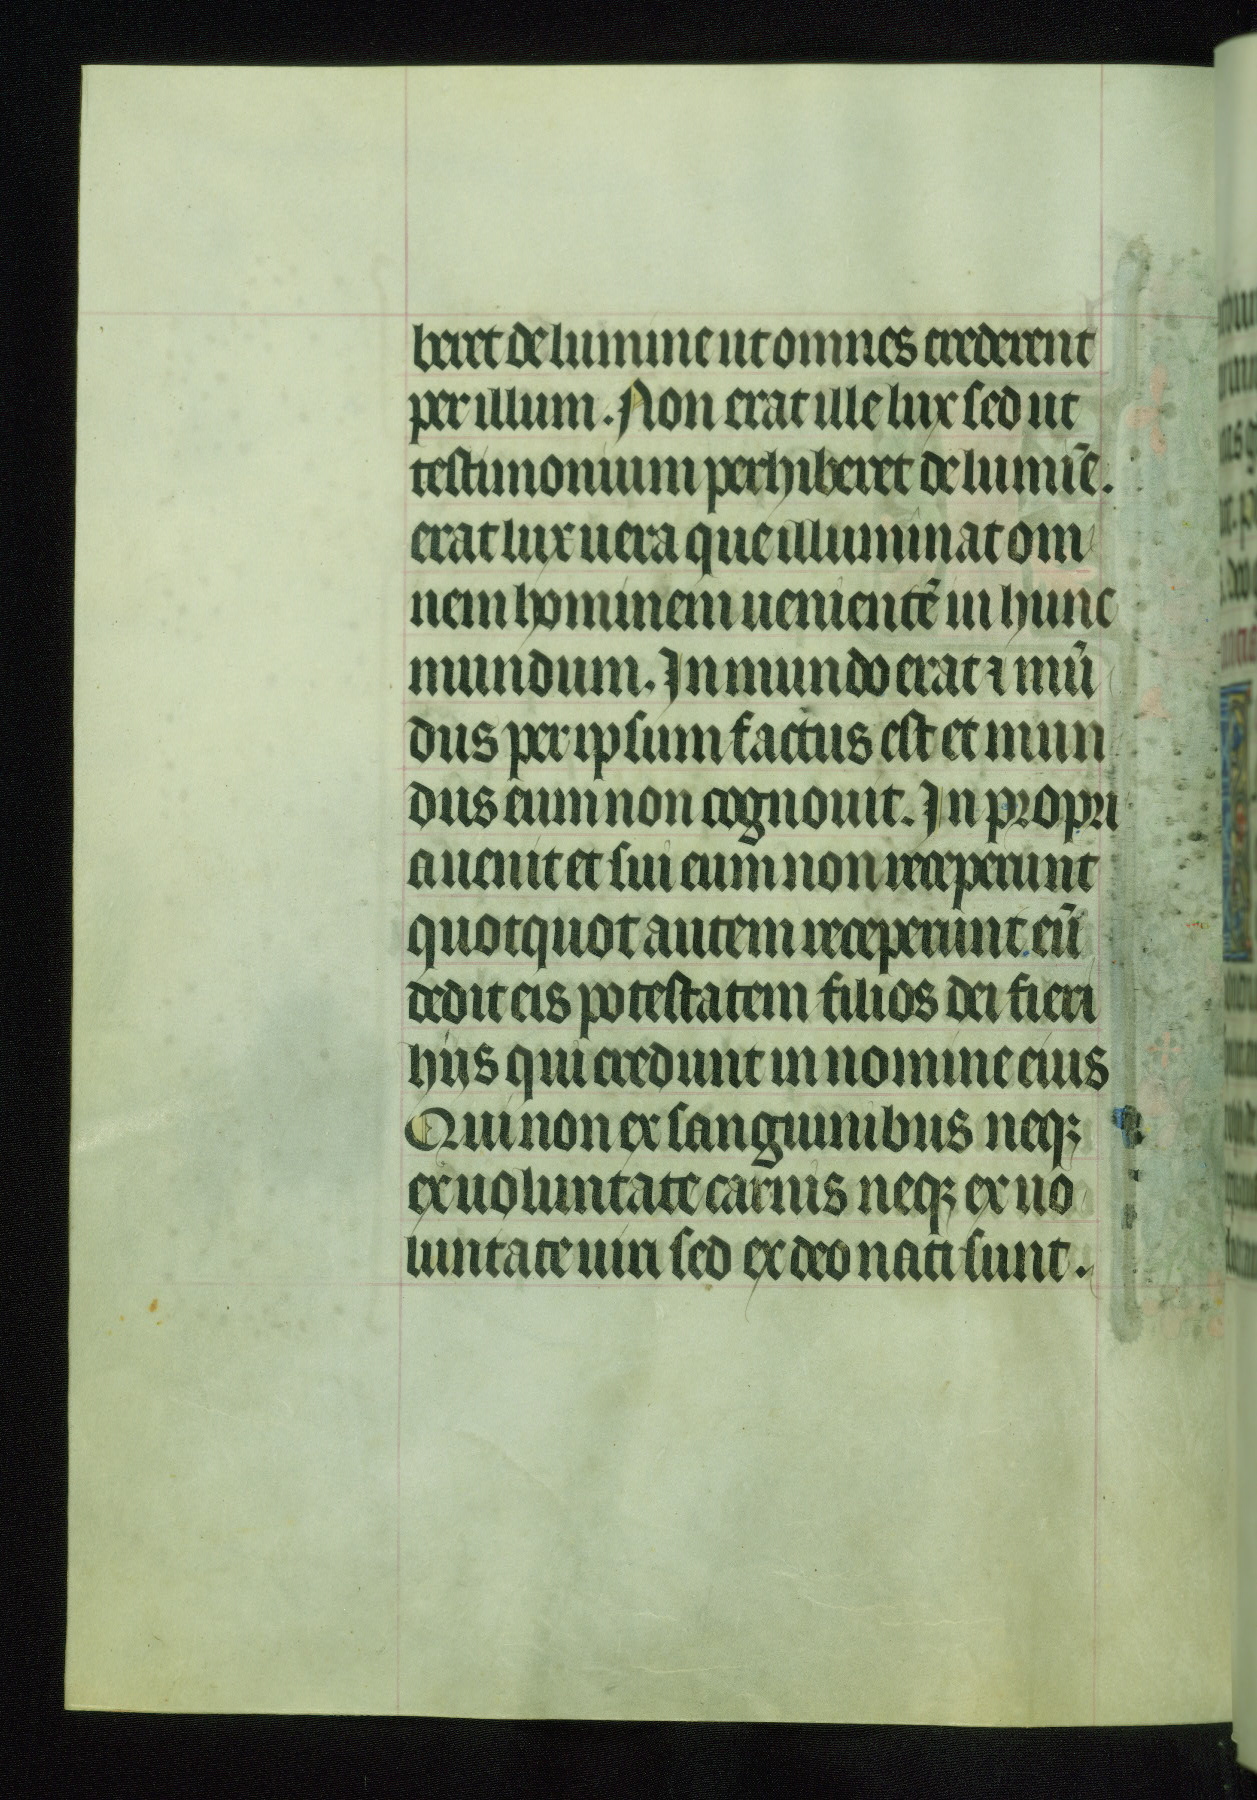 beret de lumine ut omnes crederent
per illum. Non erat ille lux sed ut
testimonium perhiberet de lumīe.
erat lux uera que illuminat om
nem hominem uenientē in hunc
mundum. In mundo erat ⁊ mū
dus per ipsum factus est et mun
dus eum non cognouit. In propri
a uenit et sui eum non receperunt
quotquot autem receperunt eū
dedit eis potestatem filios dei fieri
hijs qui credunt in nomine eius
Qui non ex sanguinibus neqꝫ
ex uoluntate carnis neqꝫ ex uo
luntate uiri sed ex deo nati sunt.